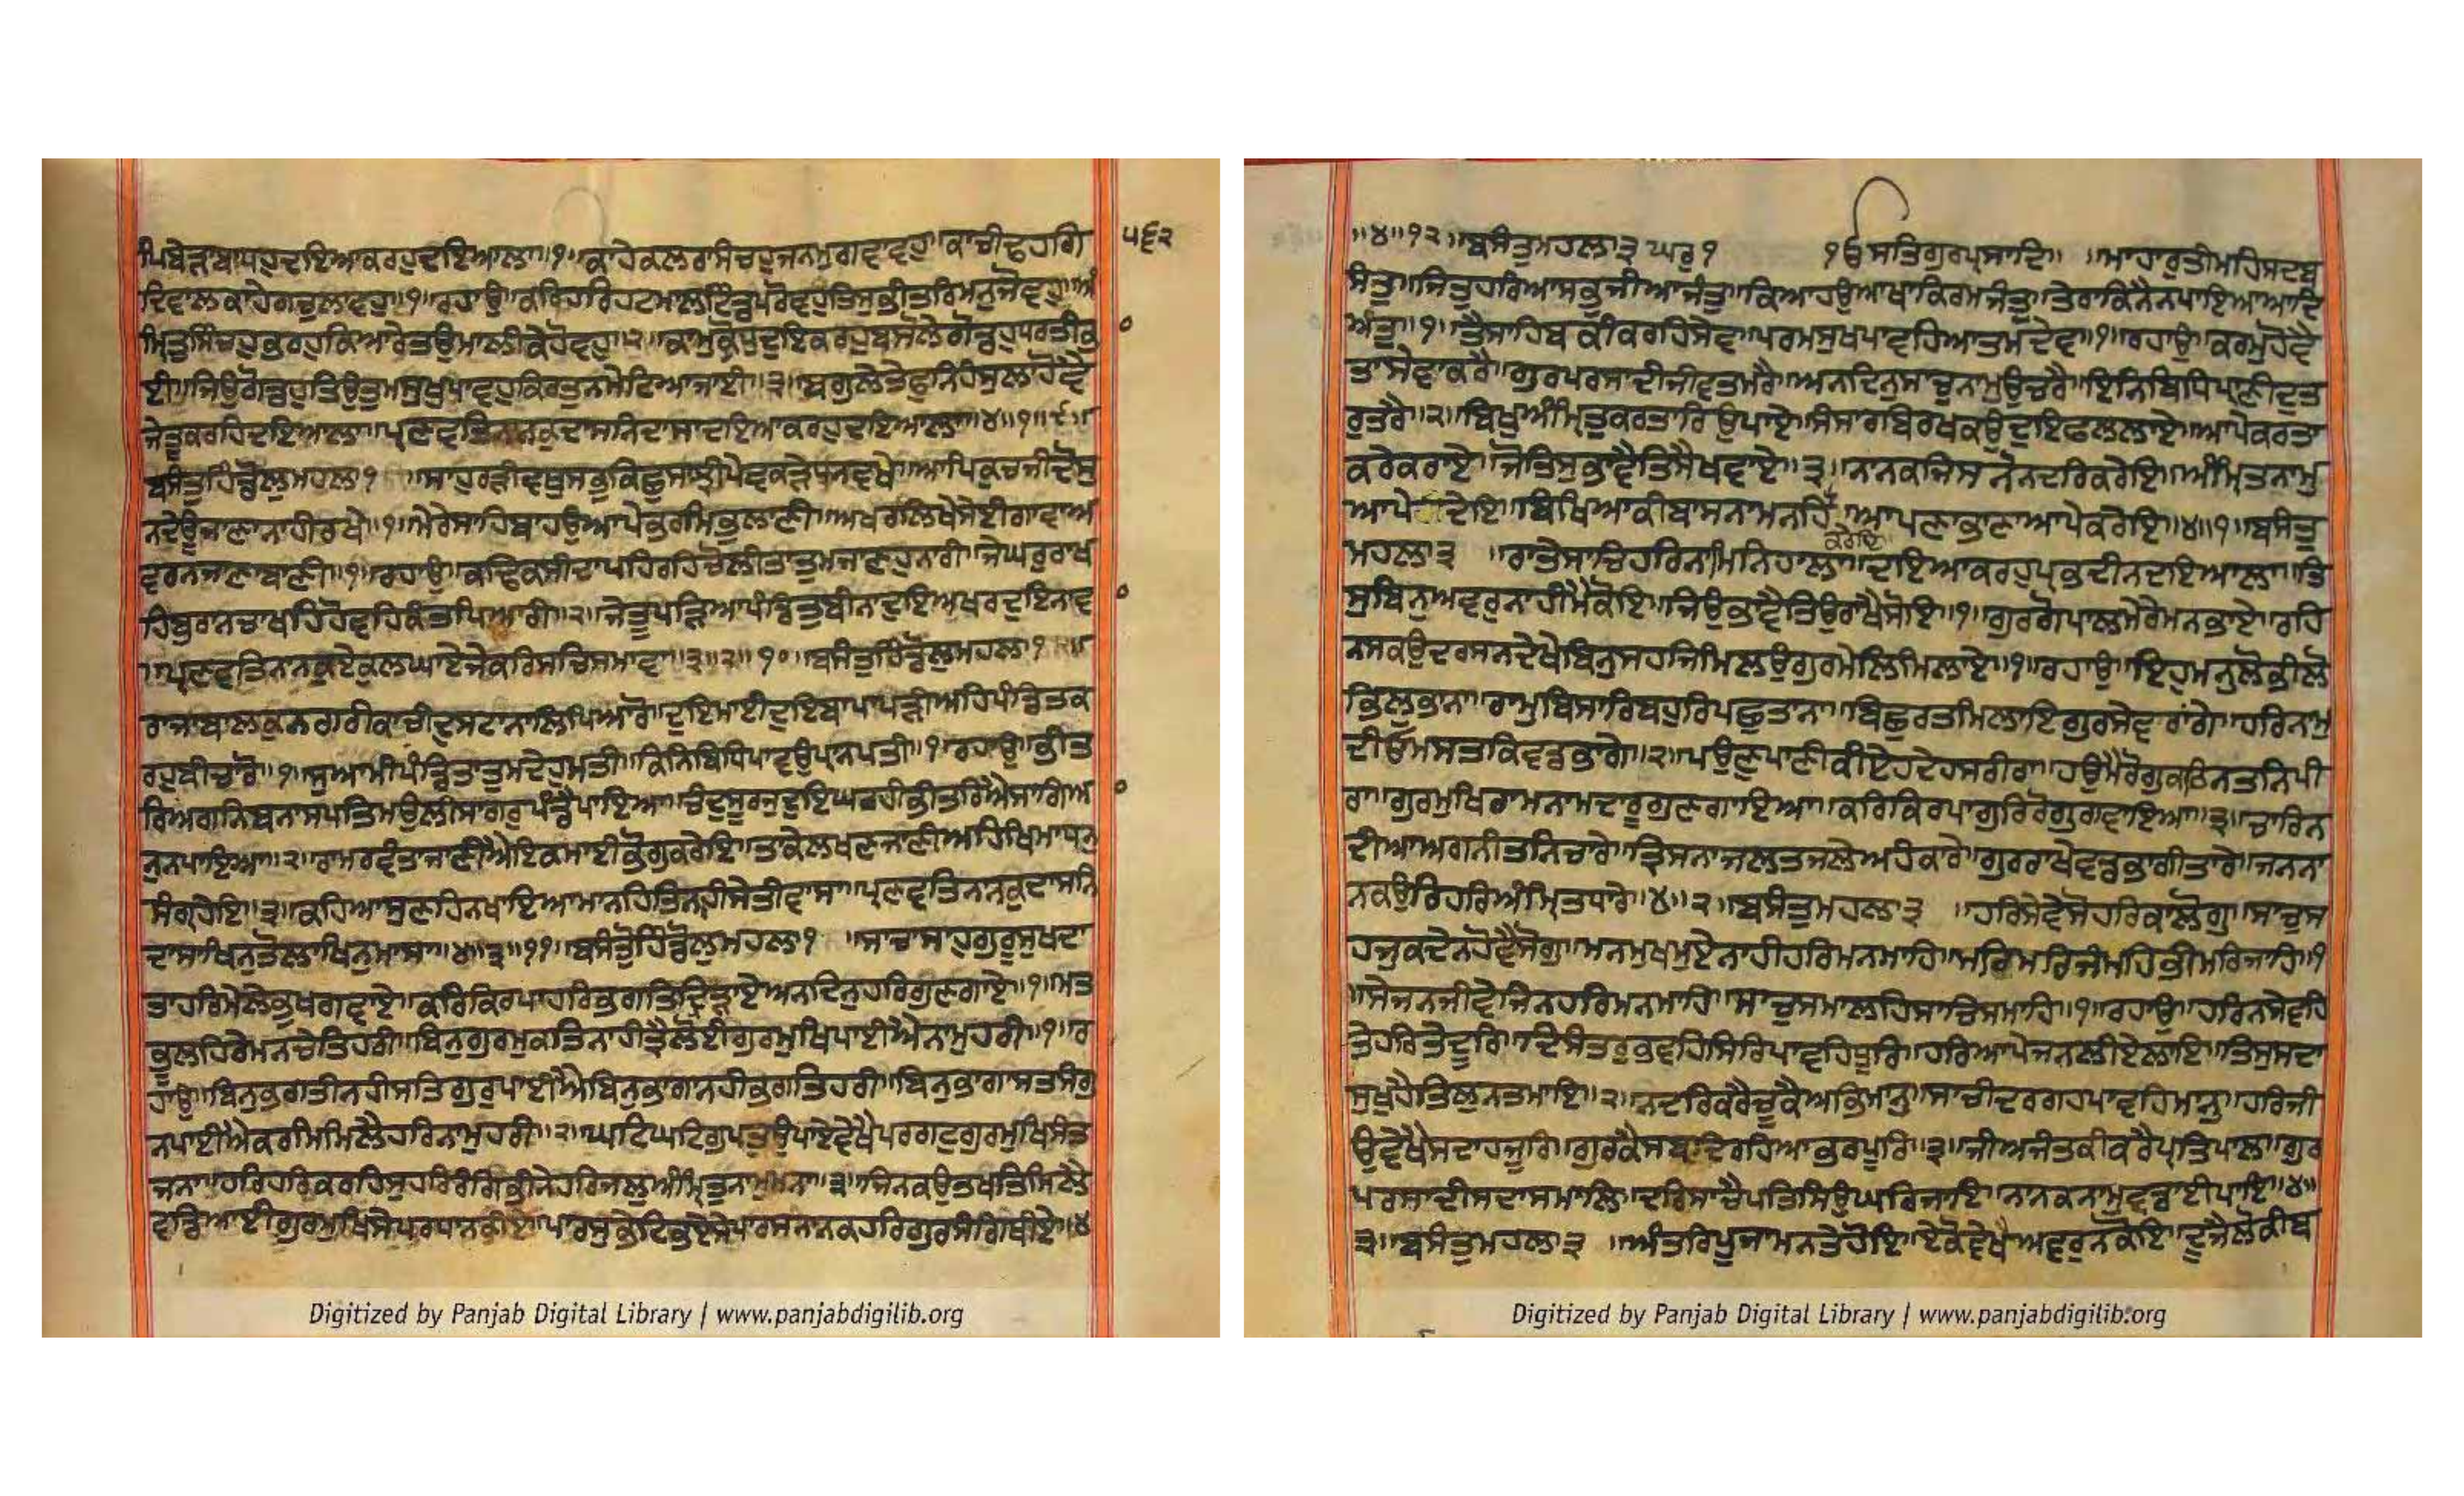 ਮਿਪਬੇੜਾਬਾਧਹੁਦਇਆਕਰਹੁਦਇਆਲਾ॥੧॥ਕਾਹੇਕਲਰਾਸਿੰਚਹੁਜਨਮੁਗਵਾਵਹੁ॥ਕਾਚੀਢਹਗਿ
੫੬੨
ਦਿਵਾਲਕਾਹੇਗਚੁਲਾਵਹੁ॥੧॥ਰਹਾਉ॥ਕਰਿਹਰਿਹਟਮਾਲਟਿੰਡਪਰੋਵਹੁਤਿਸੁਭੀਤਰਿਮਨੁਜੋਵਹੁ॥ਅੰ
ਮ੍ਰਿਤੁਸਿੰਚਹੁਭਰਹੁਕਿਆਰੇਤਉਮਾਲੀਕੇਹੋਵਹੁ॥੨॥ਕਾਮੁਕ੍ਰੋਧੁਦੁਇਕਰਹੁਬਸੋਲੇਗੋਡਹੁਧਰਤੀਭ
ਈ॥ਜਿਉਗੋਡਹੁਤਿਉਤੁਮਸੁਖਪਾਵਹੁਕਿਰਤੁਨਮੇਟਿਆਜਾਈ॥੩॥ਬਗੁਲੇਤੇਫੁਨਿਹੰਸੁਲਾਹੋਵੈ
ਜੇਤੂਕਰਹਿਦਇਆਲਾ॥ਪ੍ਰਣਵਤਿਨਾਨਕੁਦਾਸਨਿਦਾਸਾਦਇਆਕਰਹੁਦਇਆਲਾ॥੪॥੧॥੯॥
ਬਸੰਤੁਹਿੰਡੋਲੁਮਹਲਾ੧ ॥ਸਾਹੁਰੜੀਵਥੁਸਭੁਕਿਛੁਸਾਝੀਪੇਵਕੜੈਧਨਵਖੇ॥ਆਪਿਕੁਚਜੀਦੋਸੁ
ਨਦੇਊਜਾਣਾਨਾਹੀਰਖੇ॥੧॥ਮੇਰੇਸਾਹਿਬਾਹਉਆਪੇਭਰਮਿਭੁਲਾਣੀ॥ਅਖਰਲਿਖੇਸੇਈਗਾਵਾਅ
ਵਰਨਜਾਣਾਬਾਣੀ॥੧॥ਰਹਾਉ॥ਕਢਿਕਸੀਦਾਪਹਿਰਹਿਚੋਲੀਤਾਤੁਮਜਾਣਹੁਨਾਰੀ॥ਜੇਘਰੁਰਾਖ
ਹਿਬੁਰਾਨਚਾਖਹਿਹੋਵਹਿਕੰਤਪਿਆਰੀ॥੨॥ਜੇਤੂਪੜਿਆਪੰਡਿਤੁਬੀਨਾਦੁਇਅਖਰਦੁਇਨਾਵ
॥ਪ੍ਰਣਵਤਿਨਾਨਕੁਏਕੁਲਘਾਏਜੇਕਰਿਸਚਿਸਮਾਵਾ॥੩॥੨॥੧੦॥ਬਸੰਤੁਹਿੰਡੋਲੁਮਹਲਾ੧॥
ਰਾਜਾਬਾਲਕੁਨਗਰੀਕਾਚੀਦੁਸਟਾਨਾਲਿਪਿਆਰੋ॥ਦੁਇਮਾਈਦੁਇਬਾਪਾਪੜੀਅਹਿਪੰਡਿਤਕ
ਰਹੁਬੀਚਾਰੋ॥੧॥ਸੁਆਮੀਪੰਡਿਤਾਤੁਮਦੇਹੁਮਤੀ॥ਕਿਨਿਬਿਧਿਪਾਵਉਪ੍ਰਾਨਪਤੀ॥੧॥ਰਹਾਉ॥ਭੀਤ
ਰਿਅਗਨਿਬਨਾਸਪਤਿਮਉਲੀਸਾਗਰੁਪੰਡੈਪਾਇਆ॥ਚੰਦੁਸੂਰਜੁਦੁਇਘਰਹੀਭੀਤਰਿਐਸਾਗਿਆ
ਨੁਨਪਾਇਆ॥੨॥ਰਾਮਰਵੰਤਾਜਾਣੀਐਇਕਮਾਈਭੋਗੁਕਰੇਇ॥ਤਾਕੇਲਖਣਜਾਣੀਅਹਿਖਿਮਾਧਨੁ
ਸੰਗ੍ਰਹੇਇ॥੩॥ਕਹਿਆਸੁਣਹਿਨਖਾਇਆਮਾਨਹਿਤਿਨ੍ਹਹੀਸੇਤੀਵਾਸਾ॥ਪ੍ਰਣਵਤਿਨਾਨਕੁਦਾਸਨਿ
ਦਾਸਾਖਿਨੁਤੋਲਾਖਿਨੁਮਾਸਾ॥੪॥੩॥੧੧॥ਬਸੰਤੁਹਿੰਡੋਲੁਮਹਲਾ੧ ॥ਸਾਚਾਸਾਹੁਗੁਰੂਸੁਖਦਾ
ਤਾਹਰਿਮੇਲੇਭੁਖਗਵਾਏ॥ਕਰਿਕਿਰਪਾਹਰਿਭਗਤਿਦ੍ਰਿੜਾਏਅਨਦਿਨੁਹਰਿਗੁਣਗਾਏ॥੧॥ਮਤ
ਭੂਲਹਿਰੇਮਨਚੇਤਿਹਰੀ॥ਬਿਨੁਗੁਰਮੁਕਤਿਨਾਹੀਤ੍ਰੈਲੋਈਗੁਰਮੁਖਿਪਾਈਐਨਾਮੁਹਰੀ॥੧॥ਰ
ਹਾਉ॥ਬਿਨੁਭਗਤੀਨਹੀਸਤਿਗੁਰੁਪਾਈਐਬਿਨੁਭਾਗਾਨਹੀਭਗਤਿਹਰੀ॥ਬਿਨੁਭਾਗਾਸਤਸੰਗੁ
ਨਪਾਈਐਕਰਮਿਮਿਲੈਹਰਿਨਾਮੁਹਰੀ॥੨॥ਘਟਿਘਟਿਗੁਪਤੁਉਪਾਏਵੇਖੈਪਰਗਟੁਗੁਰਮੁਖਿਸੰਤ
ਜਨਾ॥ਹਰਿਹਰਿਕਰਹਿਸੁਹਰਿਰੰਗਿਭੀਨੇਹਰਿਜਲੁਅੰਮ੍ਰਿਤੁਨਾਮੁਮਨਾ॥੩॥ਜਿਨਕਉਤਖਤਿਮਿਲੈ
ਵਡਿਆਈਗੁਰਮੁਖਿਸੇਪਰਧਾਨਕੀਏ॥ਪਾਰਸੁਭੇਟਿਭਏਸੇਪਾਰਸਨਾਨਕਹਰਿਗੁਰਸੰਗਿਥੀਏ॥੪
Digitized by Panjab Digital Library | www.panjabdigilib.org
॥੪॥੧੨॥ਬਸੰਤੁਮਹਲਾ੩ਘਰੁ੧ ੧ੳਸਤਿਗੁਰਪ੍ਰਸਾਦਿ॥ ॥ਮਾਹਾਰੁਤੀਮਹਿਸਦਬ
ਸੰਤੁ॥ਜਿਤੁਹਰਿਆਸਭੁਜੀਆਜੰਤੁ॥ਕਿਆਹਉਆਖਾਕਿਰਮਜੰਤੁ॥ਤੇਰਾਕਿਨੈਨਪਾਇਆਆਦਿ
ਅੰਤੁ॥੧॥ਤੈਸਾਹਿਬਕੀਕਰਹਿਸੇਵ॥ਪਰਮਸੁਖਪਾਵਹਿਆਤਮਦੇਵ॥੧॥ਰਹਾਉ॥ਕਰਮੁਹੋਵੈ
ਤਾਸੇਵਾਕਰੈ॥ਗੁਰਪਰਸਾਦੀਜੀਵਤਮਰੈ॥ਅਨਦਿਨੁਸਾਚੁਨਾਮੁਉਚਰੈ॥ਇਨਿਬਿਧਿਪ੍ਰਾਣੀਦੁਤ
ਰੁਤਰੈ॥੨॥ਬਿਖੁਅੰਮ੍ਰਿਤੁਕਰਤਾਰਿਉਪਾਏ॥ਸੰਸਾਰਬਿਰਖਕਉਦੁਇਫਲਲਾਏ॥ਆਪੇਕਰਤਾ
ਕਰੇਕਰਾਏ॥ਜੋਤਿਸੁਭਾਵੈਤਿਸੈਖਵਾਏ॥੩॥ਨਾਨਕਜਿਸਨੋਨਦਰਿਕਰੇਇ॥ਅੰਮ੍ਰਿਤਨਾਮੁ
ਆਪੇਦੇਇ॥ਬਿਖਿਆਕੀਬਾਸਨਾਮਨਹਿ ਕਰੇਇ॥ਆਪਣਾਭਾਣਾਆਪੇਕਰੇਇ॥੪॥੧॥ਬਸੰਤੁ
ਮਹਲਾ੩ ॥ਰਾਤੇਸਾਚਿਹਰਿਨਾਮਿਨਿਹਾਲਾ॥ਦਇਆਕਰਹੁਪ੍ਰਭਦੀਨਦਇਆਲਾ॥ਤਿ
ਸੁਬਿਨੁਅਵਰੁਨਾਹੀਮੈਕੋਇ॥ਜਿਉਭਾਵੈਤਿਉਰਾਖੈਸੋਇ॥੧॥ਗੁਰਗੋਪਾਲਮੇਰੈਮਨਭਾਏ॥ਰਹਿ
ਨਸਕਉਦਰਸਨਦੇਖੇਬਿਨੁਸਹਜਿਮਿਲਉਗੁਰਮੇਲਿਮਿਲਾਏ॥੧॥ਰਹਾਉ॥ਇਹੁਮਨੁਲੋਭੀਲੋ
ਭਿਲੁਭਾਨਾ॥ਰਾਮੁਬਿਸਾਰਿਬਹੁਰਿਪਛੁਤਾਨਾ॥ਬਿਛੁਰਤਮਿਲਾਇਗੁਰਸੇਵਰਾਂਗੇ॥ਹਰਿਨਾਮੁ
ਦੀਓਮਸਤਕਿਵਡਭਾਗੇ॥੨॥ਪਉਣੁਪਾਣੀਕੀਇਹਦੇਹਸਰੀਰਾ॥ਹਉਮੈਰੋਗੁਕਠਿਨਤਨਿਪੀ
ਰਾ॥ਗੁਰਮੁਖਿਰਾਮਨਾਮਦਾਰੂਗੁਣਗਾਇਆ॥ਕਰਿਕਿਰਪਾਗੁਰਿਰੋਗੁਗਵਾਇਆ॥੩॥ਚਾਰਿਨ
ਦੀਆਅਗਨੀਤਨਿਚਾਰੇ॥ਤ੍ਰਿਸਨਾਜਲਤਜਲੇਅਹੰਕਾਰੇ॥ਗੁਰਰਾਖੇਵਡਭਾਗੀਤਾਰੇ॥ਜਨਨਾ
ਨਕਉਰਿਹਰਿਅੰਮ੍ਰਿਤਧਾਰੇ॥੪॥੨॥ਬਸੰਤੁਮਹਲਾ੩ ॥ਹਰਿਸੇਵੇਸੋਹਰਿਕਾਲੋਗੁ॥ਸਾਚੁਸ
ਹਜੁਕਦੇਨਹੋਵੈਸੋਗੁ॥ਮਨਮੁਖਮੁਏਨਾਹੀਹਰਿਮਨਮਾਹਿ॥ਮਰਿਮਰਿਜੰਮਹਿਭੀਮਰਿਜਾਹਿ॥੧
॥ਸੇਜਨਜੀਵੇਜਿਨਹਰਿਮਨਮਾਹਿ॥ਸਾਚੁਸਮਾਲਹਿਸਾਚਿਸਮਾਹਿ॥੧॥ਰਹਾਉ॥ਹਰਿਨਸੇਵਹਿ
ਤੇਹਰਿਤੇਦੂਰਿ॥ਦਿਸੰਤਰੁਭਵਹਿਸਿਰਿਪਾਵਹਿਧੂਰਿ॥ਹਰਿਆਪੇਜਨਲੀਏਲਾਇ॥ਤਿਸੁਸਦਾ
ਸੁਖੁਹੈਤਿਲੁਨਤਮਾਇ॥੨॥ਨਦਰਿਕਰੈਚੂਕੈਅਭਿਮਾਨੁ॥ਸਾਚੀਦਰਗਹਪਾਵਹਿਮਾਨੁ॥ਹਰਿਜੀ
ਉਵੇਖੈਸਦਾਹਜੂਰਿ॥ਗੁਰਕੈਸਬਦਿਰਹਿਆਭਰਪੂਰਿ॥੩॥ਜੀਅਜੰਤਕੀਕਰੈਪ੍ਰਤਿਪਾਲ॥ਗੁਰ
ਪਰਸਾਦੀਸਦਾਸਮਾਲਿ॥ਦਰਿਸਾਚੈਪਤਿਸਿਉਘਰਿਜਾਇ॥ਨਾਨਕਨਾਮੁਵਡਾਈਪਾਇ॥੪॥
੩॥ਬਸੰਤੁਮਹਲਾ੩ ॥ਅੰਤਰਿਪੂਜਾਮਨਤੇਹੋਇ॥ਏਕੋਵੇਖੈਅਵਰੁਨਕੋਇ॥ਦੂਜੈਲੋਕੀਬ
Digitized by Panjab Digital Library | www.panjabdigilib.org